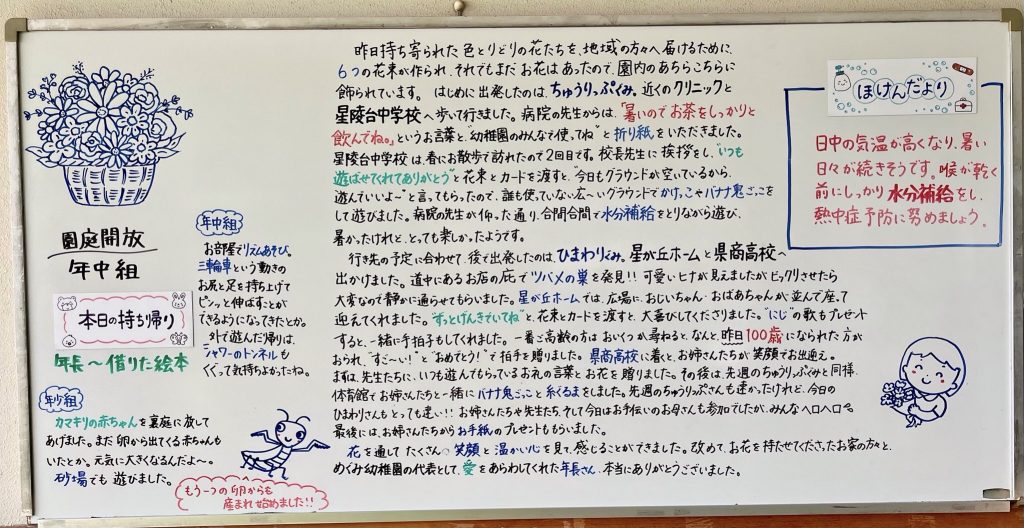 昨日持ち寄られた色とりどりの花たちを、地域の方々へ届けるために、
6つの花束が作られ、それでもまだお花はあったので、園内のあちらこちらに
飾られています。はじめに出発したのは、ちゅうりっぷぐみ。近くのクリニックと
星陵台中学校へ歩いて行きました。病院の先生からは、「暑いのでお茶をしっかりと
飲んでね。」というお言葉と"幼稚園のみんなで使ってね"と折り紙をいただきました。
星陵台中学校は、春にお散歩で訪れたので2回目です。校長先生に挨拶をし、"いつも
遊ばせてくれてありがとう"と花束とカードを渡すと、"今日もグラウンドが空いているから、
遊んでいいよ〜"と言ってもらったので、誰も使っていない広〜いグラウンドでかけっこやバナナ鬼ごっこを
して遊びました。病院の先生が仰った通り、合間合間で水分補給をとりながら遊び、
暑かったけれど、とっても楽しかったようです。
行き先の予定に合わせて、後で出発したのは、ひまわりぐみ。星が丘ホームと県商高校へ
出かけました。道中にあるお店の庇でツバメの巣を発見!! 可愛いヒナが見えましたがビックリさせたら
大変なので静かに通らせてもらいました。星が丘ホームでは、広場に、おじいちゃん・おばあちゃんが並んで座って
迎えてくれました。"ずっとげんきでいてね"と、花束とカードを渡すと、大喜びしてくださりました。"にじ"の歌もプレゼント
すると、一緒に手拍子もしてくれました。一番ご高齢の方はおいくつか尋ねると、なんと、昨日100歳になられた方が
おられ、"すご〜い!"と"おめでとう!"で拍手を贈りました。県商高校に着くと、お姉さんたちが笑顔でお出迎え。
まずは、先生たちに、いつも遊んでもらっているお礼の言葉とお花を贈りました。その後は、先週のちゅうりっぷぐみと同様、
体育館でお姉さんたちと一緒にバナナ鬼ごっこと糸ぐるまをしました。先週のちゅうりっぷさんも速かったけれど、今日の
ひまわりさんもとっても速い!! お姉さんたちや先生たち、そして今日はお手伝いのお母さんも参加でしたが、みんなヘロヘロ
最後には、お姉さんたちからお手紙のプレゼントももらいました。
花を通してたくさんの笑顔と温かい心を見て、感じることができました。改めて、お花を持たせてくださったお家の方々と、
めぐみ幼稚園の代表として、愛をあらわしてくれた年長さん、本当にありがとうございました。
ほけんだより
日中の気温が高くなり、暑い
日々が続きそうです。喉が乾く
前にしっかり水分補給をし、
熱中症予防に努めましょう。
園庭開放
年中組
本日の持ち帰り
年長〜借りた絵本
年中組
お部屋でリズムあそび。
三輪車という動きの
お尻と足を持ち上げて
ピンッと伸ばすことが
できるようになってきたとか。
外で遊んだ帰りは、
シャワーのトンネルも
くぐって気持ちよかったね。
年少組
カマキリの赤ちゃんを裏庭に放して
あげました。まだ卵から出てくる赤ちゃんも
いたとか。元気に大きくなるんだよ〜。
砂場でも遊びました。
もう一つの卵からも
産まれ始めました!!